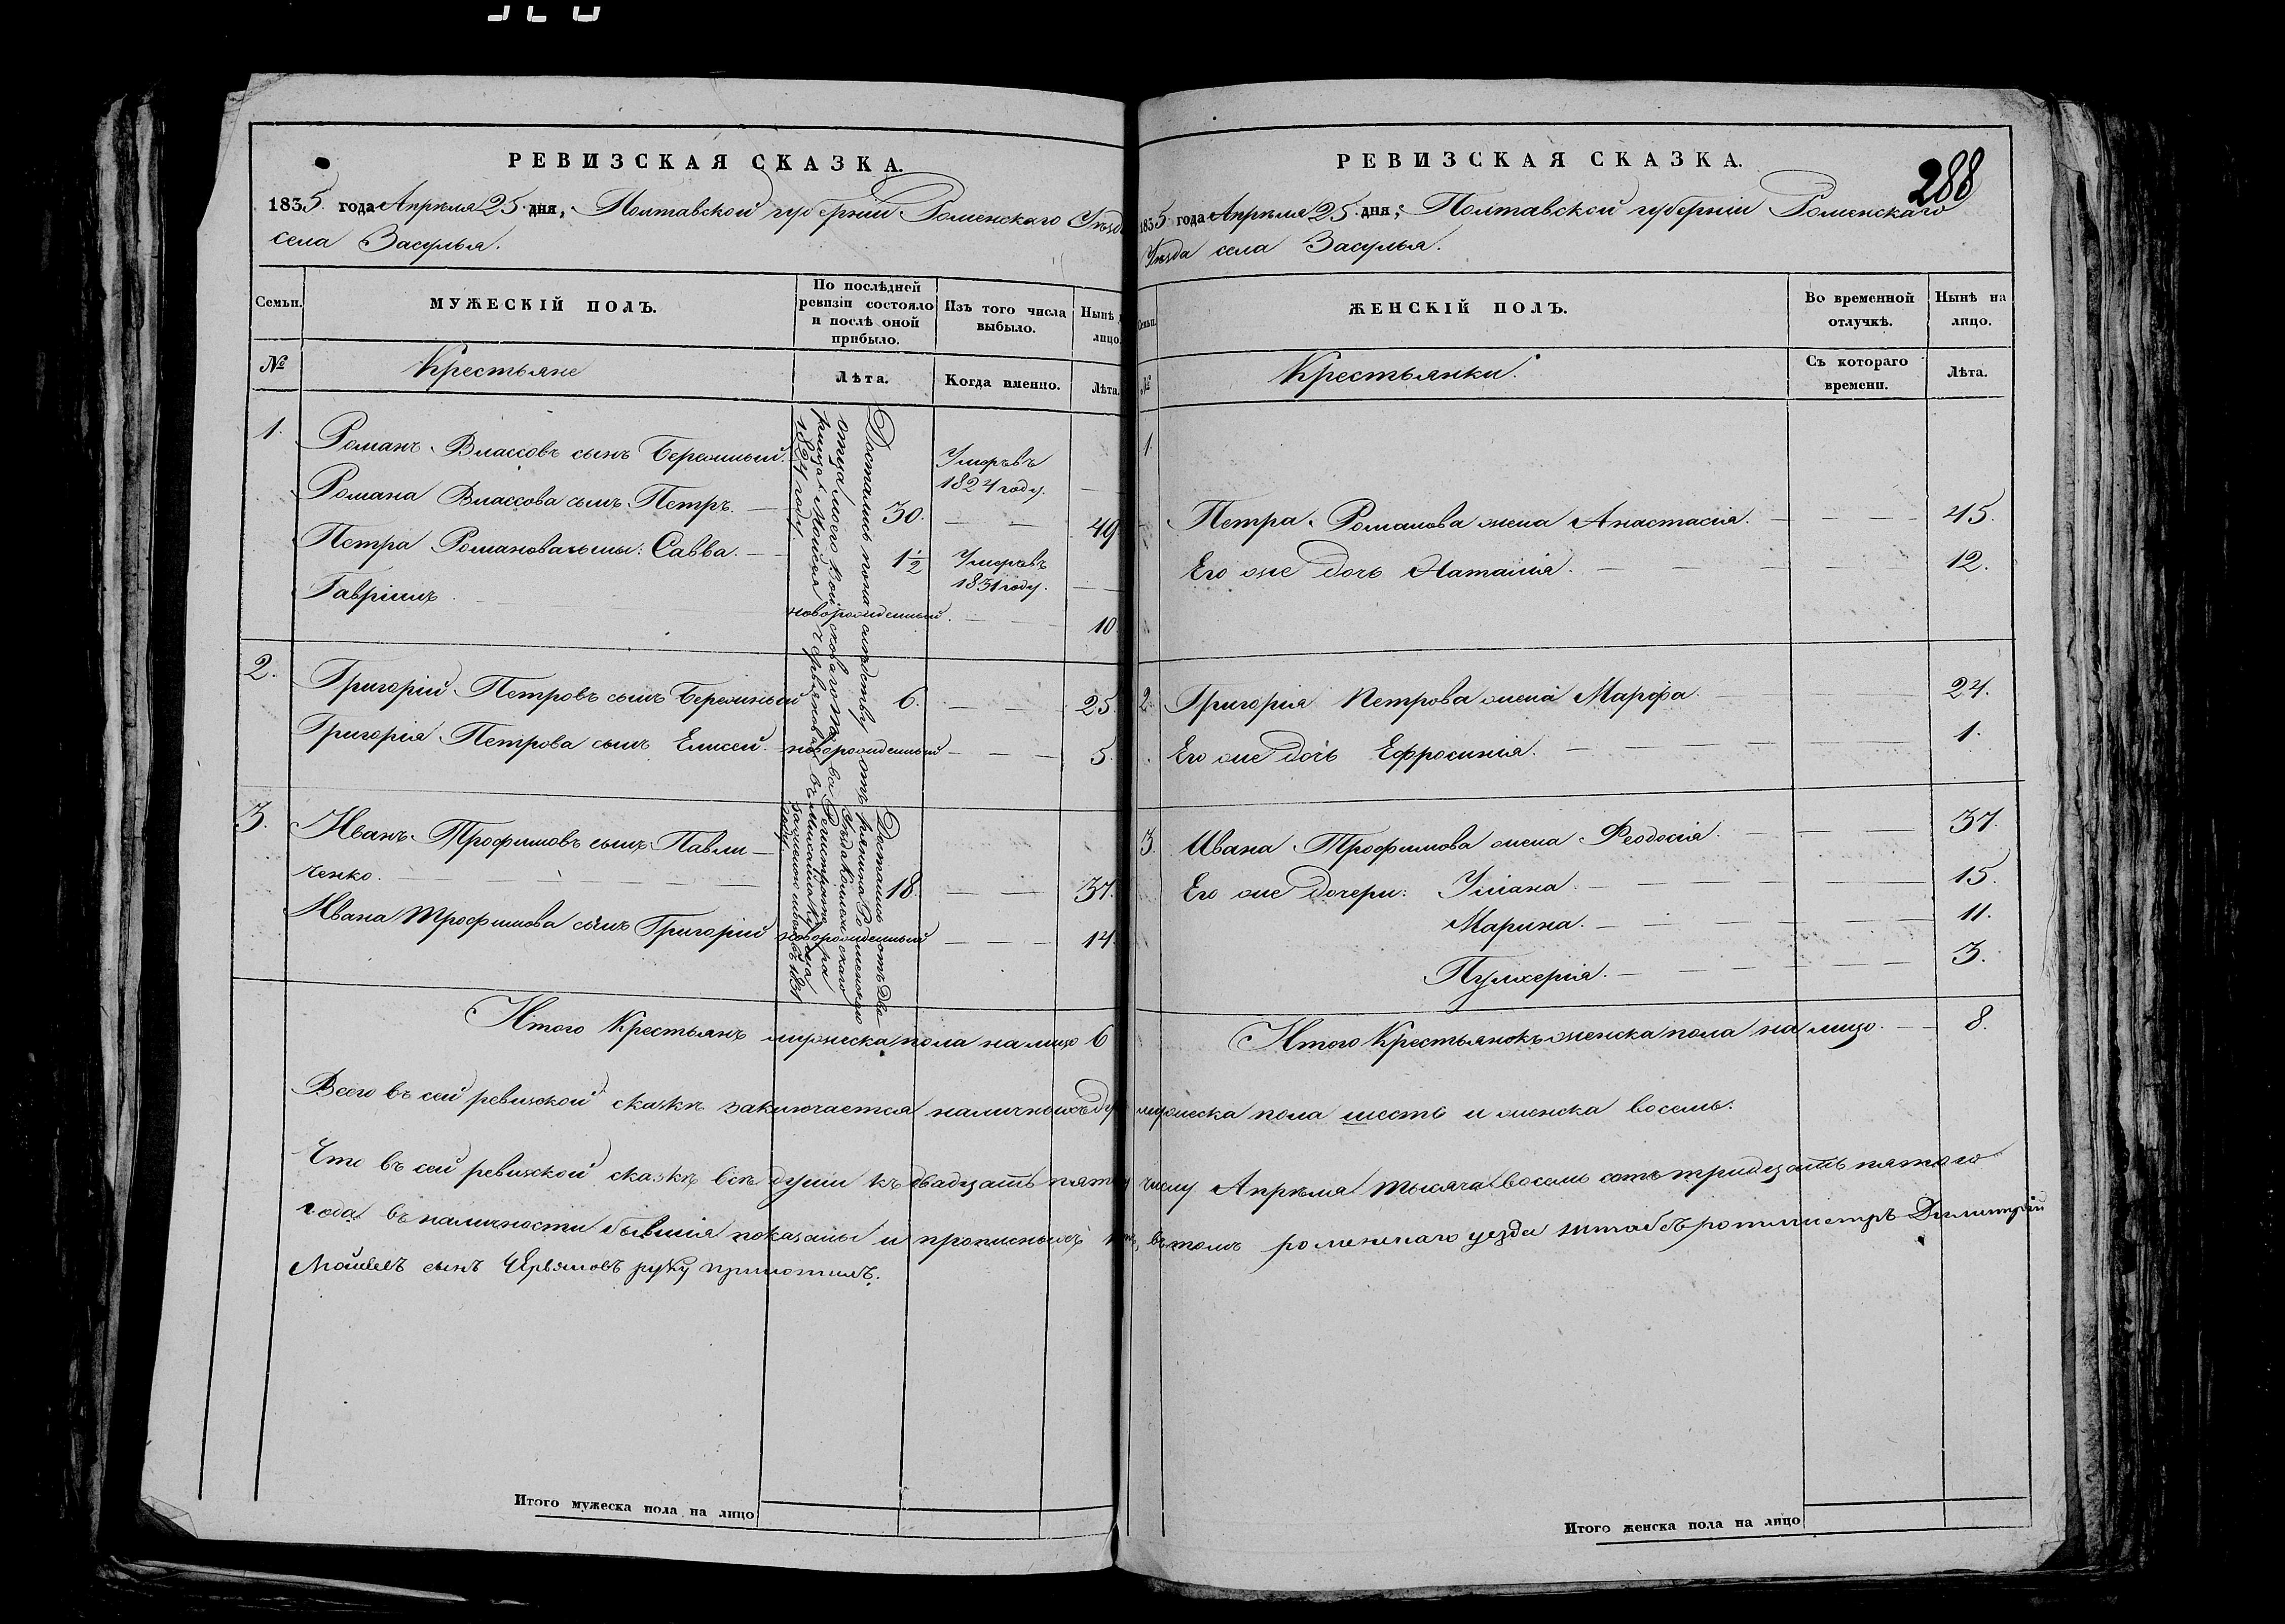 РЕВИЗСКАЯ СКАЗКА.
1835. года Апрѣля 25. дня, Полтавской губерніи Роменскаго Уѣзда
села Засулья.
Семьи.
МУЖЕСКІЙ ПОЛЪ.
По послѣдней
ревизіи состояло
и послѣ оной
прибыло.
Изъ того числа
выбыло.
Нынѣ
лицо.
№
Крестьяне
Лѣта.
Когда именно.
Лѣта.
1. Романъ Влассовъ сынъ Бережный.
Умеръ въ
1824 году.
Романа Влассова сынъ Петръ. 30. 49
Петра Романова сыны: Савва. 1½
Умеръ въ
1831 году.
Гавріилъ новорожденный. 10
2. Григорій Петровъ сынъ Бережный 6. 25.
Григорія Петрова сынъ Елисей. новорожденный 5.
3. Иванъ Трофимовъ сынъ Павли-
ченко. 18. 37.
Ивана Трофимова сынъ Григорій новорожденный 14
Достались по наслѣдству отъ
отца моего
Моисея Червянова въ
1821 году.
Досталис отъ дво-
рянина Роменскаго
Уѣзда
Регистратора
Михайла
1831
году.
Итого Крестьянъ мужеска пола на лицо 6
Всего въ сей ревизской сказкѣ заключается наличныхъ ду
Что въ сей ревизской сказкѣ всѣ души къ двадцать пятому
года въ наличности бывшія показаны и прописныхъ
Моисеевъ сынъ Червяновъ руку приложилъ.
Итого мужеска пола на лицо
РЕВИЗСКАЯ СКАЗКА.
288
1835 года Апрѣля 25. дня, Полтавской губерніи Роменскаго
Уѣзда села Засулья.
Семьи.
ЖЕНСКІЙ ПОЛЪ.
Во временной
отлучкѣ.
Нынѣ на
лицо.
№
Крестьянки.
Съ котораго
времени.
Лѣта.
1.
Петра Романова жена Анастасія. 45.
Его же дочь Наталія. 12.
2. Григорія Петрова жена Марфа. 24.
Его же дочь Ефросинія. 1.
3. Ивана Трофимова жена Феодосія. 37.
Его же дочери: Уліана. 15.
Марина. 11.
Пулхерія. 3.
Итого Крестьянокъ женска пола на лицо. 8.
мужеска пола шесть и женска восемь.
числу Апрѣля тысяча восемь сотъ тридцать пятаго
въ томъ роменскаго уезда штабъ ротмистръ Димитрій
Итого женска пола на лицо